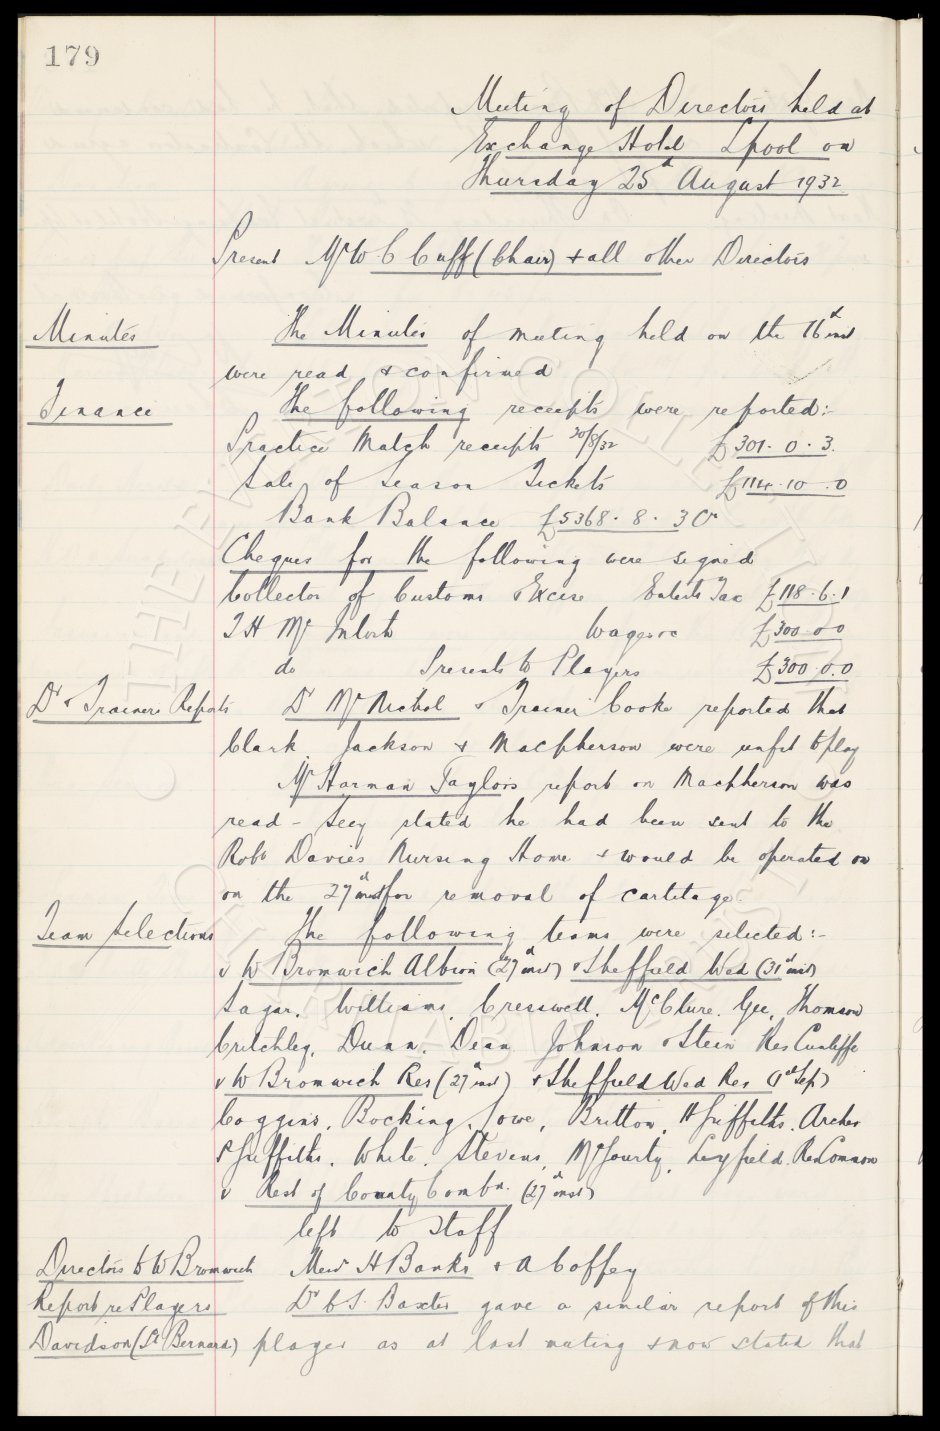 179
Meeting of Directors held at
Exchange Hotel Lpool on
Thursday 25th August 1932
Present Mr W C Cuff (Chair) & all other Directors
Minutes The Minutes of meeting held on the 16th inst
were read & confirmed
Finance The following receipts were reported:-
Practice Match receipts 20/8/32 £301. 0. 3.
Sale of Season Tickets £114. 10. 0
Bank Balance £5368. 8. 3 Cr
Cheques for the following were signed
Collector of Customs & Excise Entert Tax £118. 6. 1
T H McIntosh Wages &c £300. 0 0
do Presents to Players £300. 0. 0
Dr & Trainers Reports Dr McNichol & Trainer Cooke reported that
Clark, Jackson & Macpherson were unfit to play
Mr Harman Taylors report on Macpherson was
read - Secy stated he had been sent to the
Robt Davies Nursing Home & would be operated on
on the 27th inst for removal of cartilage.
Team Selections The following teams were selected:-
v W Bromwich Albion (27th inst) & Sheffield Wed (31st inst)
Sagar, Williams, Cresswell, McClure, Gee, Thomson
Critchley, Dunn, Dean Johnson & Stein Res Cunliffe
v W Bromwich Res (27th inst) & Sheffield Wed Res (1st Sep)
Coggins, Bocking, Lowe, Britton, H Griffiths, Archer
P Griffiths, White, Stevens, McGourty, Leyfield. Res Common
v Rest of County Combn. (27th inst)
left to Staff
Directors to W Bromwich Messrs H Banks & A Coffey
Report re Players Dr C S. Baxter gave a similar report of this
Davidson (St Bernard) player as at last meeting & now stated that